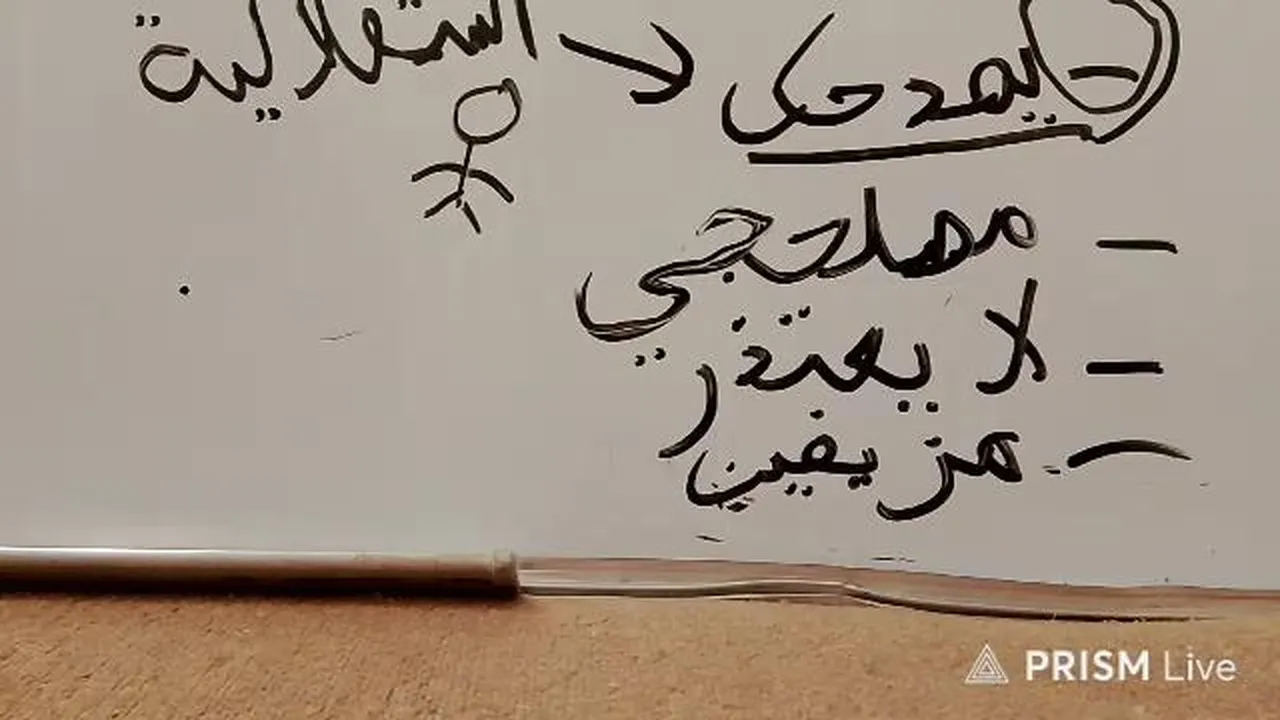 - يمدحك لا استقلالية
- مصلحجي
- لا يعتذر
- مزيفين
PRISM Live